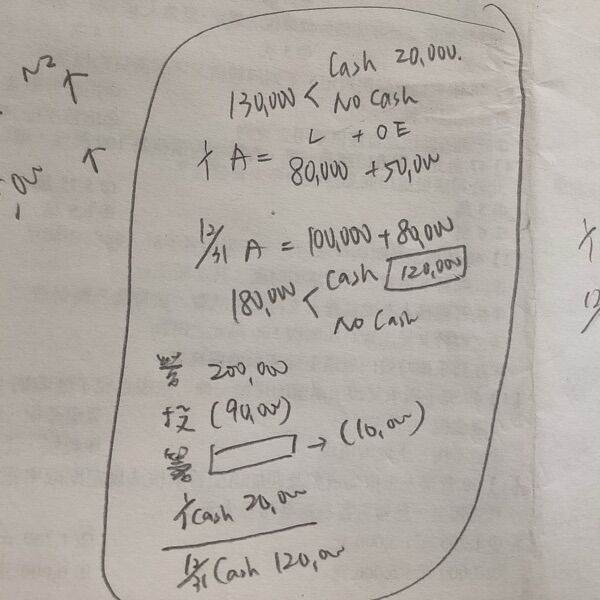 Cash 20,000.
130,000 < No Cash
L + OE
1/1 A = 80,000 + 50,000
12/31 A = 100,000 + 80,000
180,000 < Cash 120,000
No Cash
200,000
投 (90,000)
→ (10,000)
1/1 Cash 20,000
12/31 Cash 120,000